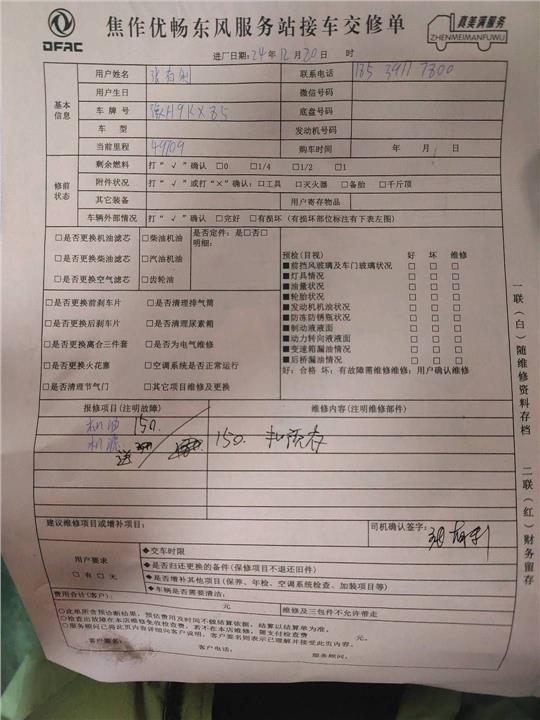 DFAC
焦作优畅东风服务站接车交修单
真美满服务
ZHENMEIMANFUWU
进厂日期：24年12月20日 时
基本信息
用户姓名 联系电话
用户生日 微信号码
车牌号 底盘号码
车型 发动机号码
当前里程 49709 购车时间 年 月
修前状态
剩余燃料 打“√”确认 □0 □1/4 □1/2 □1
附件状况 打“√”或打“×”确认：□工具 □灭火器 □备胎 □千斤顶
其它装备 用户寄存物品
车辆外部情况 打“√”确认 □完好 □有损坏（有损坏部位标注有下表左图）
□是否更换机油滤芯 □柴油机油 是否定件：是□否□
□是否更换柴油滤芯 □汽油机油 明细：
□是否更换空气滤芯 □齿轮油
□是否更换前刹车片 □是否清理排气筒
□是否更换后刹车片 □是否清理尿素箱
□是否更换离合三件套 □是否为电气维修
□是否更换火花塞 □空调系统是否正常运行
□是否清理节气门 □其它项目维修及更换
预检(目视) 好 坏 维修
■前挡风玻璃及车门玻璃状况 □ □ □
■灯具情况 □ □ □
■油量状况 □ □ □
■轮胎状况 □ □ □
■发动机机油状况 □ □ □
■防冻防锈瓶状况 □ □ □
■制动液液面 □ □ □
■动力转向液液面 □ □ □
■变速箱漏油情况 □ □ □
■后桥漏油情况 □ □ □
好：合格 坏：有故障需维修维修：用户确认维修
报修项目(注明故障) 维修内容(注明维修部件)
机油 150.
机滤
送
150.
建议维修项目或增补项目： 司机确认签字：
用户要求
□有□无
◆交车时限
◆是否归还更换的备件（保修项目不退还旧件）
◆是否增补其他项目（保养、年检、空调系统检查、加装项目等）
◆车辆是否需要清洁：
费用合计(客户)： 元 维修及三包件不允许带走
○此单所含预诊断结果，预估费用及时间不做结算依据，结算以结算单为准。
○检查出故障在本店维修免收检查费，若不在本店维修，需支付检查费 元。
○服务顾问已将此页内容详细向客户说明，客户签名则表示已理解并接受此页内容。
客户签名： 客户电话： 服务顾问：
一联（白）随维修资料存档
二联（红）财务留存